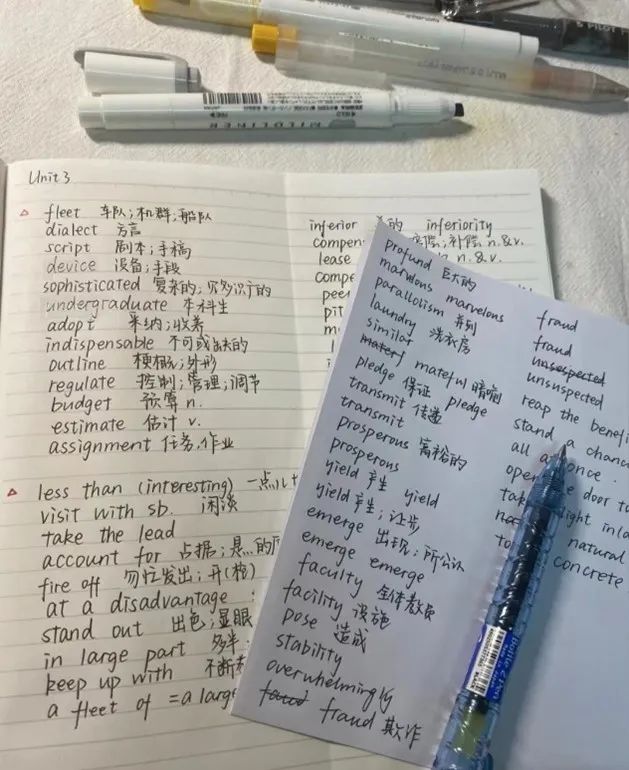 PILOT
MILDLINER
Unit 3
△ fleet 车队;机群;船队
dialect 方言
script 剧本;手稿
device 设备;手段
sophisticated 复杂的;见多识广的
undergraduate 本科生
adopt 采纳;收养
indispensable 不可或缺的
outline 梗概;外形
regulate 控制;管理;调节
budget 预算 n.
estimate 估计 v.
assignment 任务,作业
△ less than (interesting) 一点儿
visit with sb. 闲谈
take the lead
account for 占据;是…的
fire off 匆忙发出;开(枪)
at a disadvantage
stand out 出色;显眼
in large part 多半;
keep up with 不断
a fleet of =a large
inferior 的 inferiority
compen 补偿 n.&v.
lease n.&v.
compe
peer
pit
m
profund 巨大的
marvlous marvelous
parallolism 并列
laundry 洗衣房
similar
mateful 晴
pledge 保证 pledge
transmit 传递
transmit
prosperous 富裕的
prosperous
yield 产生 yield
yield 产生;让步
emerge 出现;所公认
emerge emerge
faculty 全体教员
facility 设施
pose 造成
stability
overwhelmingly
fraud 欺诈
fraud
fraud
unsespected
unsuspected
reap the benefi
stand a chanc
all a once.
open e door t
tak ight in
natural
to concrete